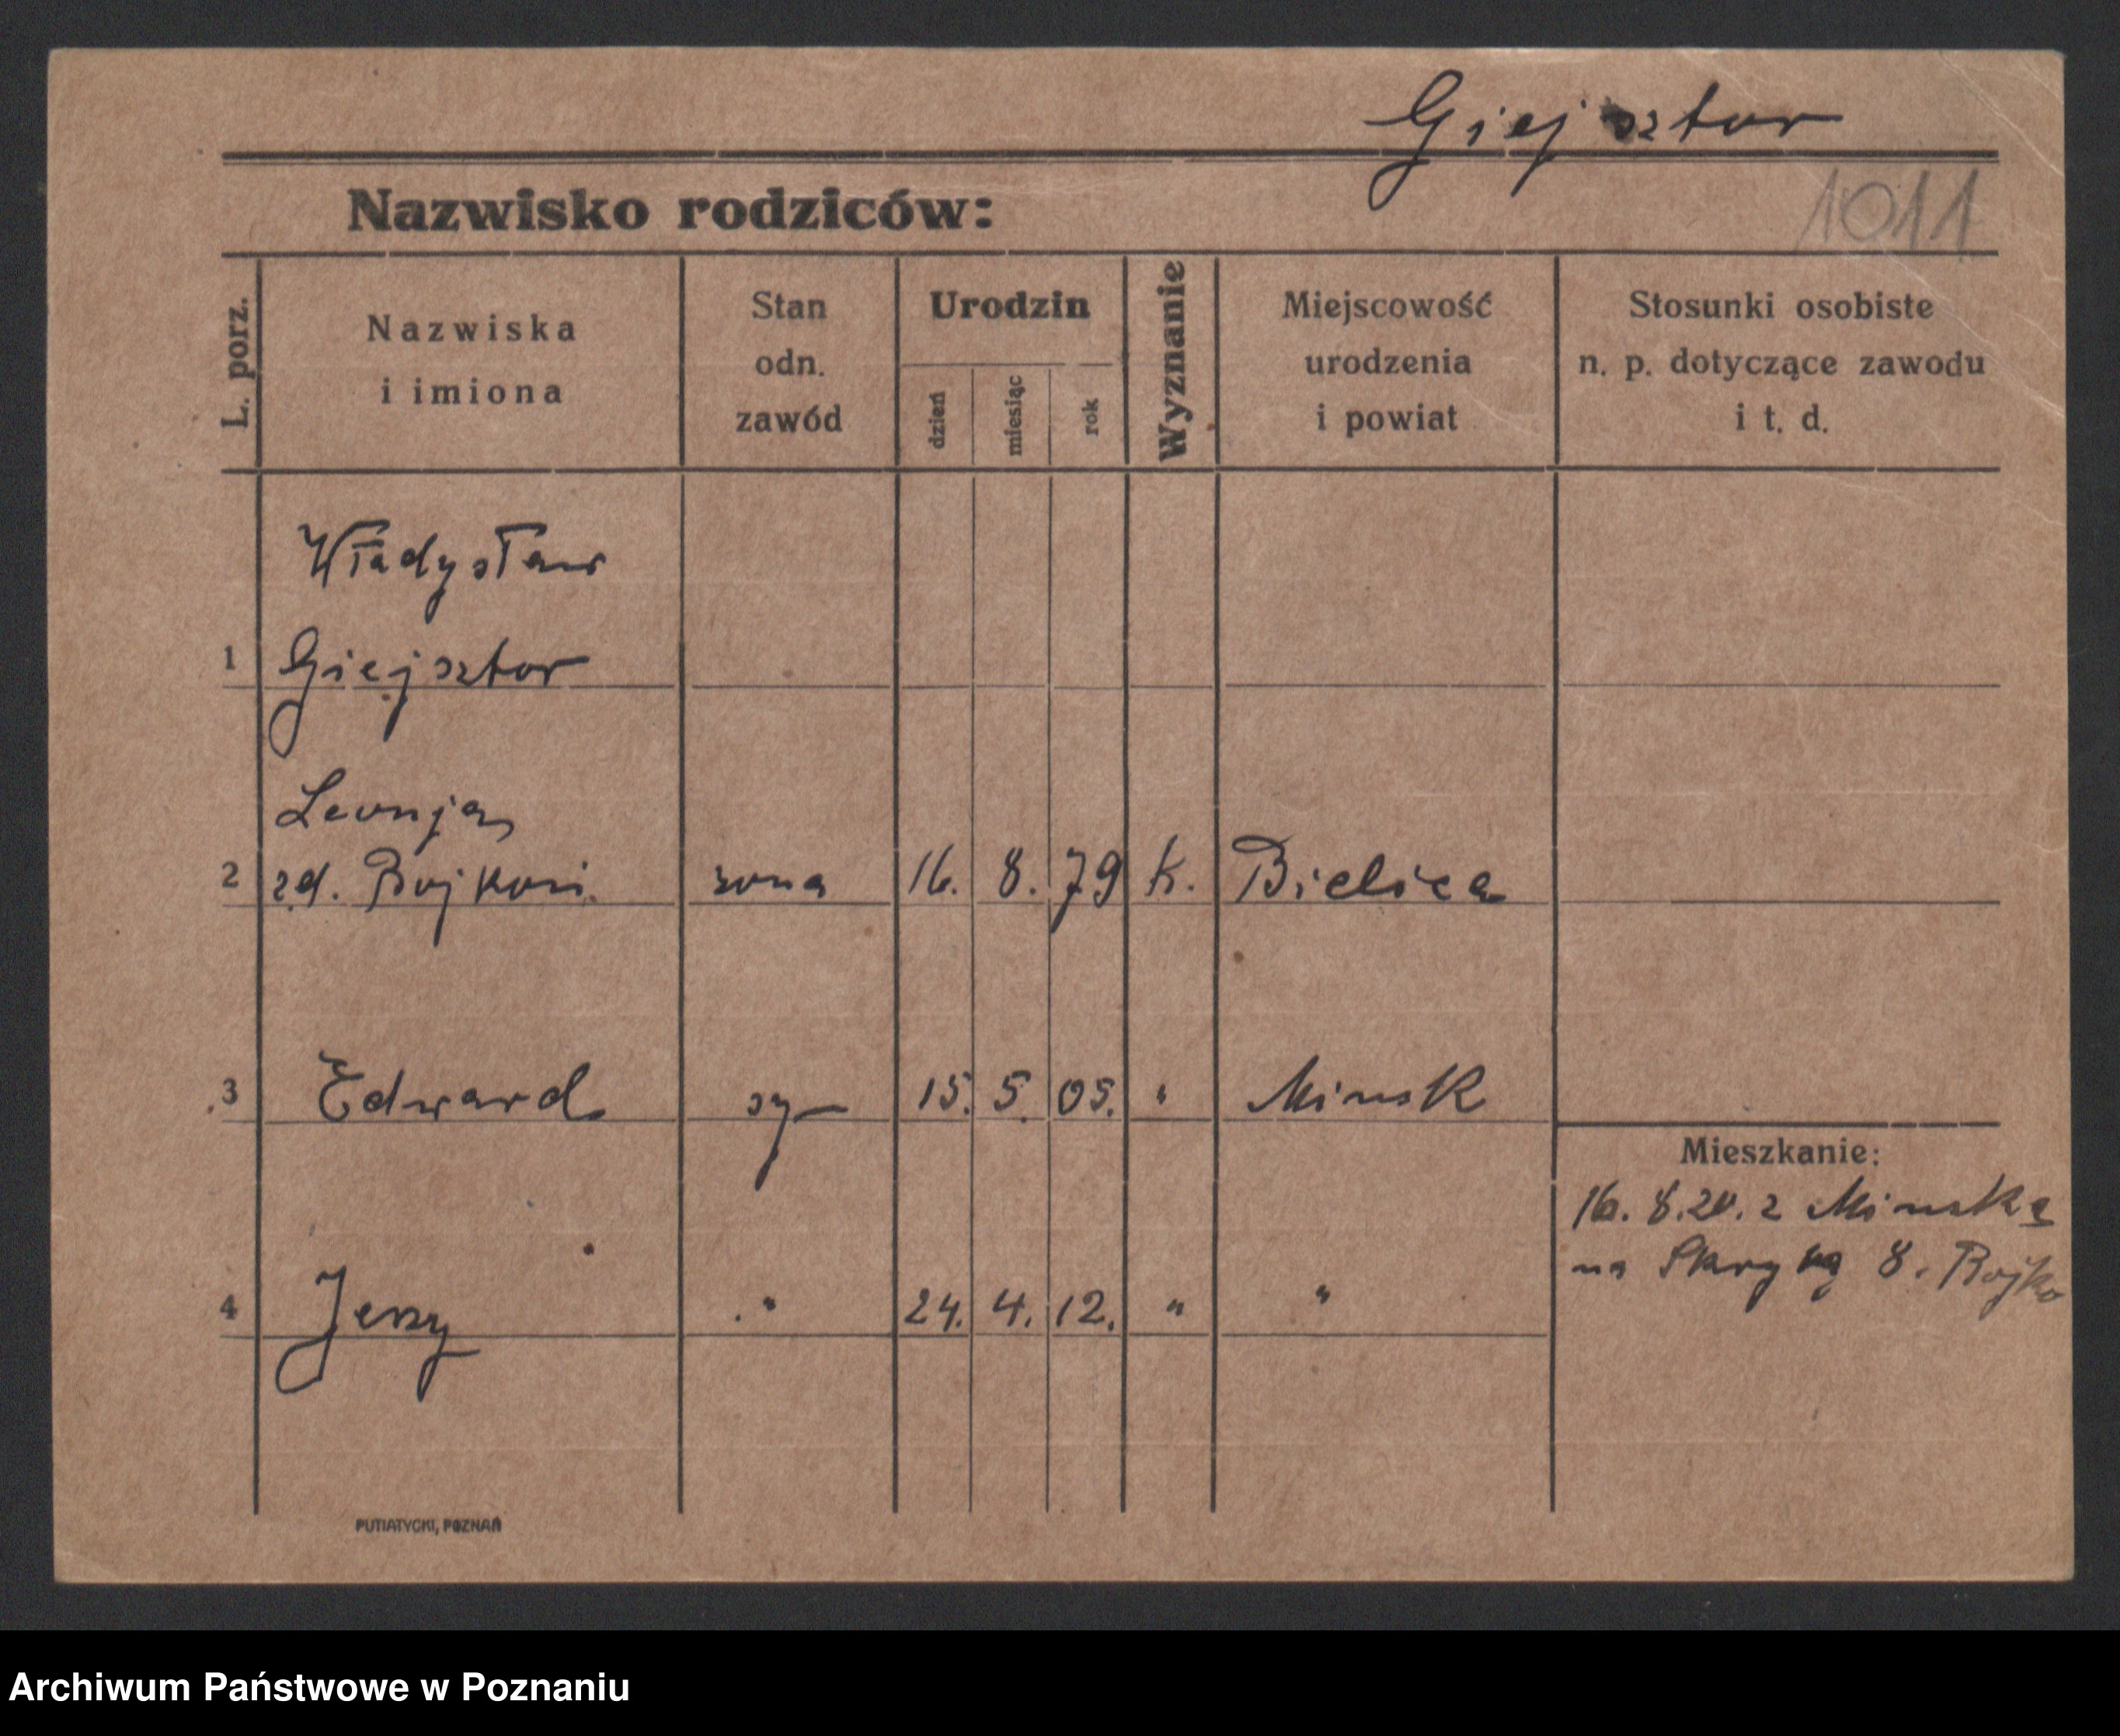 Giejsztor
Nazwisko rodziców:
1011
L. porz.
Nazwiska
i imiona
Stan
odn.
zawód
Urodzin
dzień
miesiąc
rok
Wyznanie
Miejscowość
urodzenia
i powiat
Stosunki osobiste
n. p. dotyczące zawodu
i t. d.
Władysław
1 Giejsztor
Leonja
2 zd. Bojkow żona 16. 8. 79 k. Bielica
3 Edward syn 15. 5. 05. " Minsk
Mieszkanie:
16. 8. 20. z Minska
na 8. Bojko
4 Jerzy " 24. 4. 12. " "
PUTIATYCKI, POZNAŃ
Archiwum Państwowe w Poznaniu